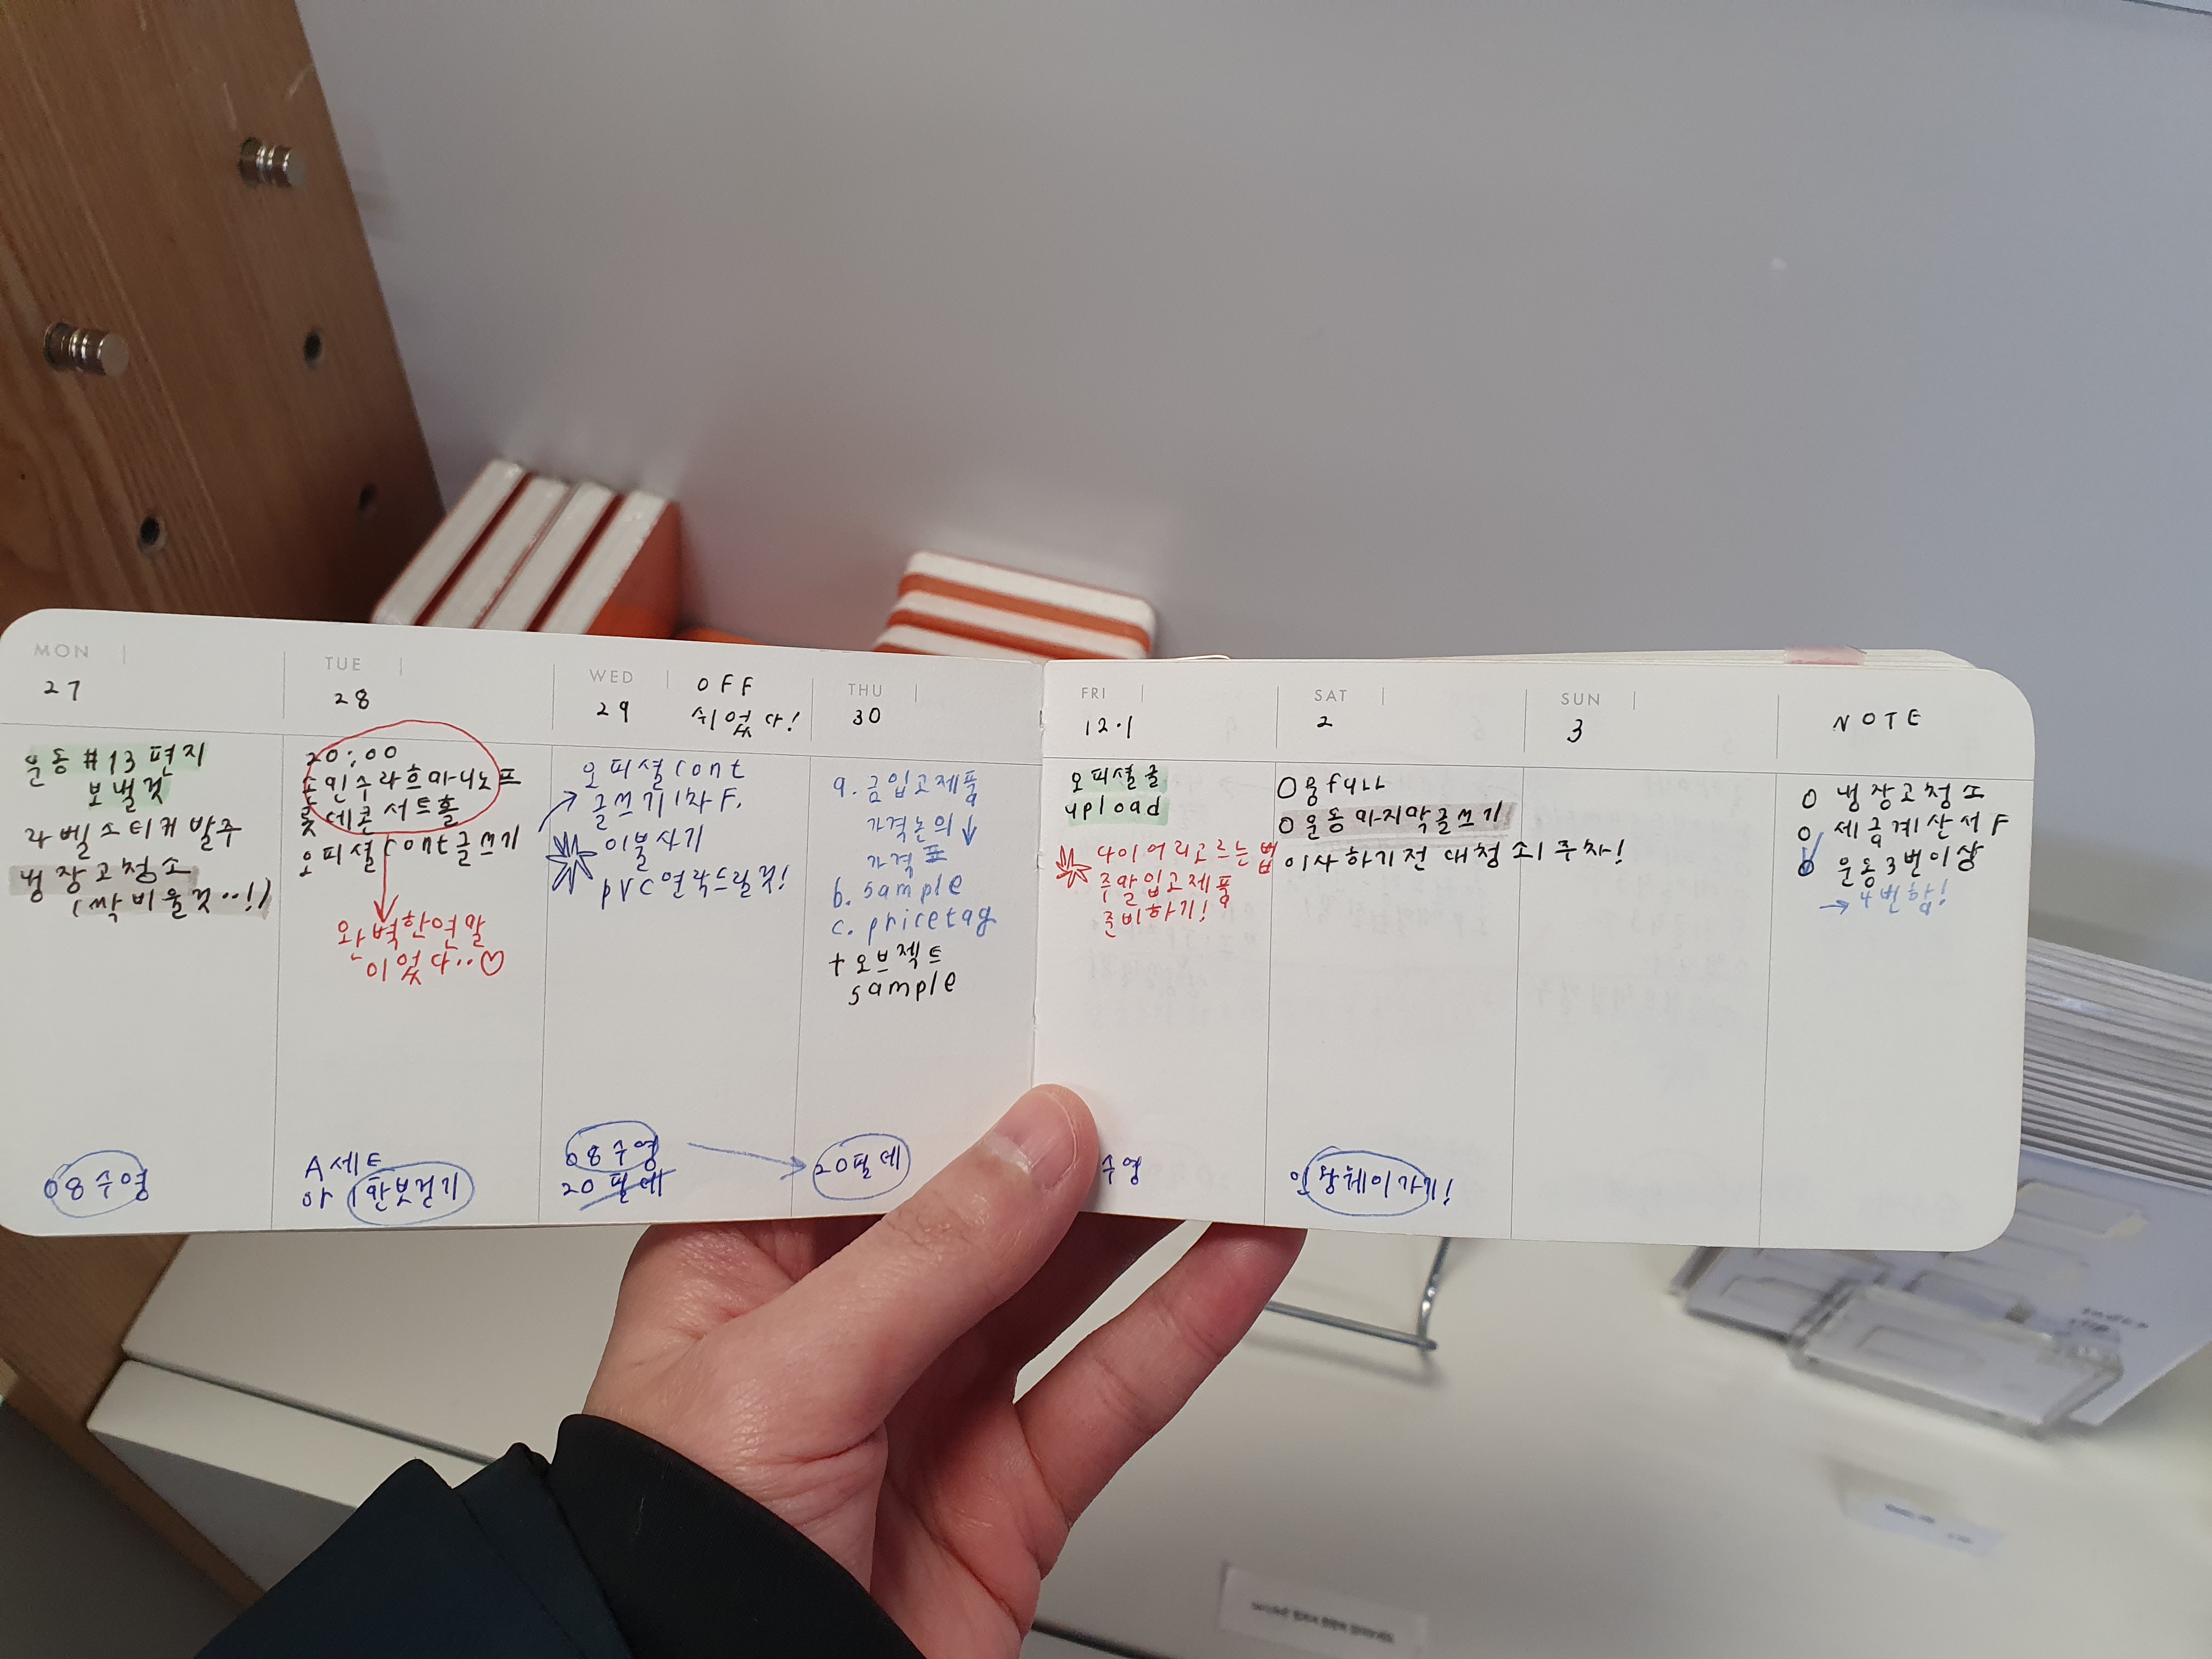 MON
27
운동 #13 편지
보낼것
라벨스티커발주
냉장고청소
(싹비울것..!)
08수영
TUE
28
20:00
손민수라흐마니노프
롯데콘서트홀
오피셜cont글쓰기
완벽한연말
이었다..♡
A세트
or 만보걷기
WED
29
OFF
쉬었다!
오피셜cont
글쓰기1차F.
이불사기
pvc연락드릴것!
08수영
20필테
THU
30
a. 금입고제품
가격논의↓
가격표
b. sample
c. pricetag
+ 오브젝트
sample
20필테
FRI
12.1
오피셜글
upload
다이어리고르는법
주말입고제품
준비하기!
수영
SAT
2
O 용full
O 운동마지막글쓰기
이사하기전 대청소1주차!
가기!
SUN
3
NOTE
O 냉장고청소
O 세금계산서F
O 운동3번이상
→ 4번함!
index